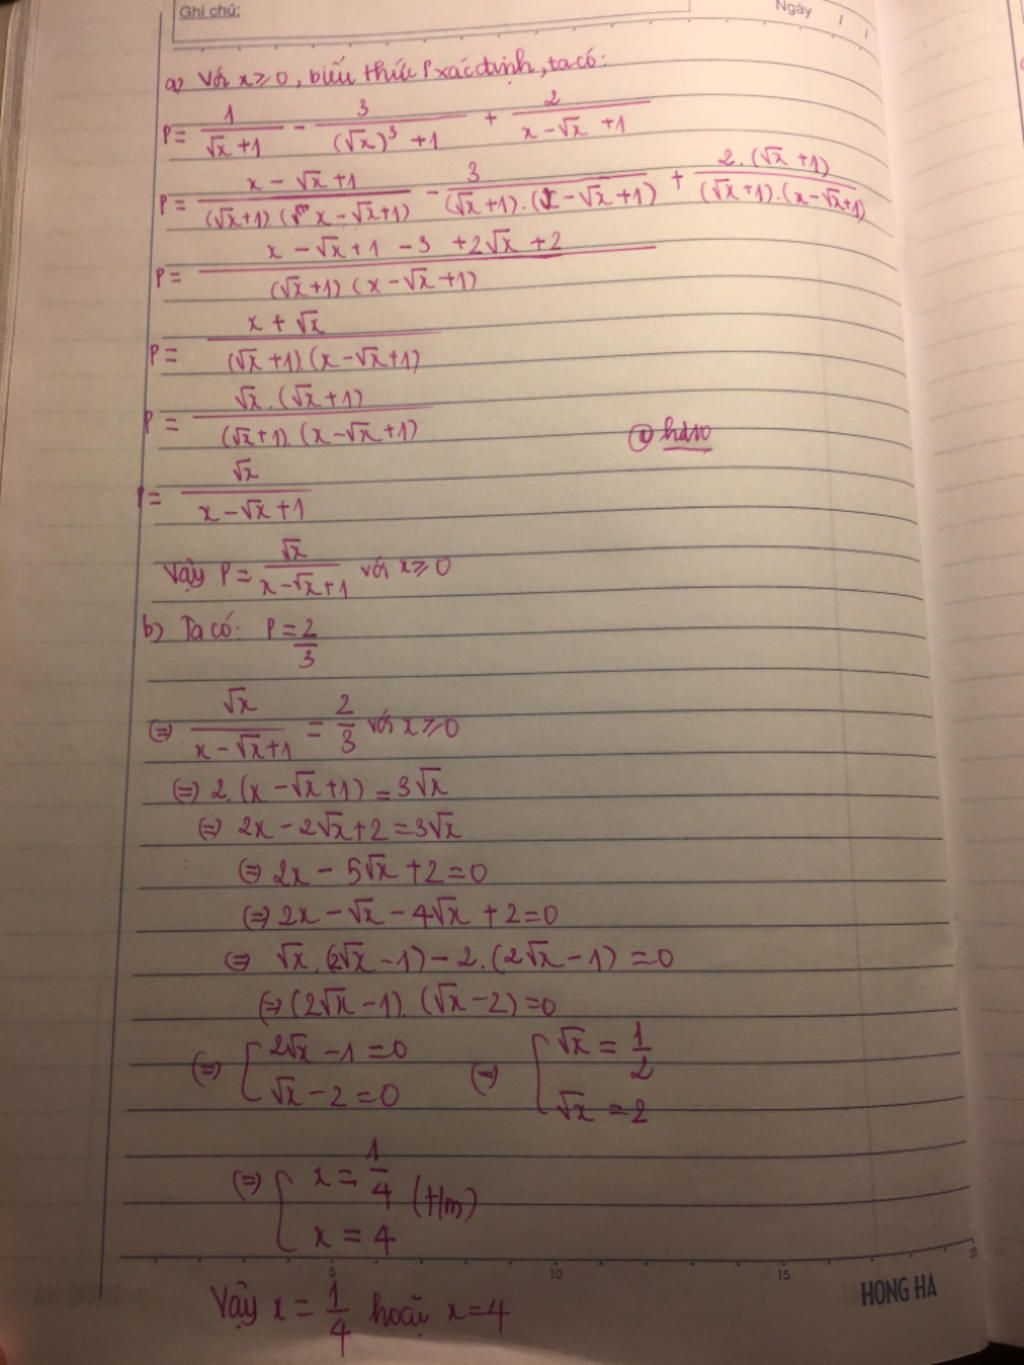 Ghi chú:
Ngày / /
a) Với x ≥ 0, biểu thức P xác định, ta có:
P = 1/(√x + 1) - 3/((√x)³ + 1) + 2/(x - √x + 1)
P = (x - √x + 1)/((√x + 1).(x - √x + 1)) - 3/((√x + 1).(x - √x + 1)) + 2.(√x + 1)/((√x + 1).(x - √x + 1))
P = (x - √x + 1 - 3 + 2√x + 2)/((√x + 1)(x - √x + 1))
P = (x + √x)/((√x + 1).(x - √x + 1))
P = √x.(√x + 1)/((√x + 1).(x - √x + 1))
P = √x/(x - √x + 1)
Vậy P = √x/(x - √x + 1) với x ≥ 0
b) Ta có: P = 2/3
(=) √x/(x - √x + 1) = 2/3 với x ≥ 0
(=) 2.(x - √x + 1) = 3√x
(=) 2x - 2√x + 2 = 3√x
(=) 2x - 5√x + 2 = 0
(=) 2x - √x - 4√x + 2 = 0
(=) √x.(2√x - 1) - 2.(2√x - 1) = 0
(=) (2√x - 1).(√x - 2) = 0
(=) [ 2√x - 1 = 0 (=) [ √x = 1/2
√x - 2 = 0 √x = 2
(=) [ x = 1/4 (t/m)
x = 4
5 10 15
HONG HA
Vậy x = 1/4 hoặc x = 4